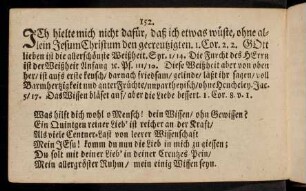 152.
JCh hielte mich nicht dafür, daß ich etwas wüste, ohne al-
lein Jesum Christum den gecreutzigten. 1. Cor. 2. 2. GOtt
lieben ist die allerschönste Weißheit. Syr. 1/14. Die Furcht des HErrn
ist der Weißheit Anfang rc. Ps. 111/10. Diese Weißheit aber von oben
her / ist aufs erste keusch / darnach friedsam / gelinde / läßt ihr sagen / voll
Barmhertzigkeit und guter Früchte / unpartheyisch / ohne Heucheley. Jac.
3/17. Das Wissen bläset auf / aber die Liebe bessert. 1. Cor. 8. v. 1.
Was hilft dich wohl o Mensch! dein Wissen / ohn Gewissen?
Ein Quintgen reiner Lieb' ist reicher an der Kraft /
Als viele Centner-Last von leerer Wissenschaft
Mein JEsu! komm du nun die Lieb in mich zu giessen;
Du solt mit deiner Lieb' in deiner Creutzes Pein /
Mein allergröster Ruhm / mein einig Wissen seyn.